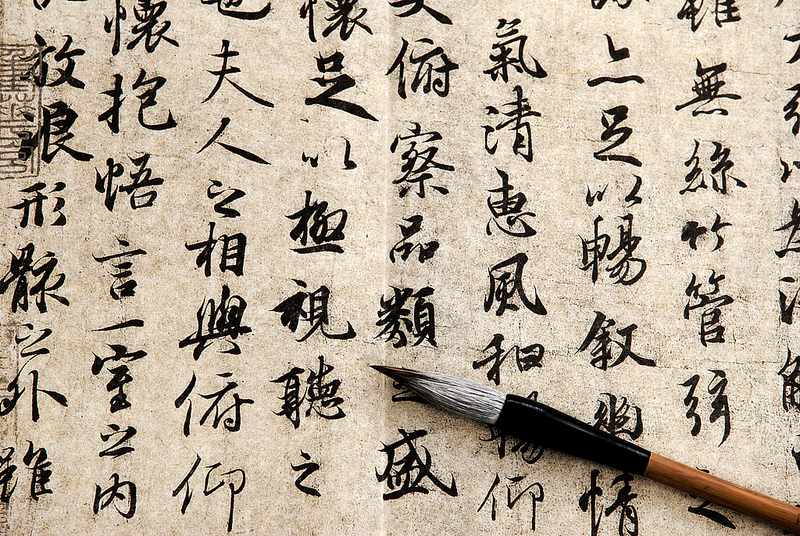 雖無絲竹管弦之
亦足以暢叙幽情
氣清惠風和暢仰
俯察品類之盛
懷足以極視聽之
也夫人之相與俯仰
懷抱悟言一室之內
放浪形骸之外雖